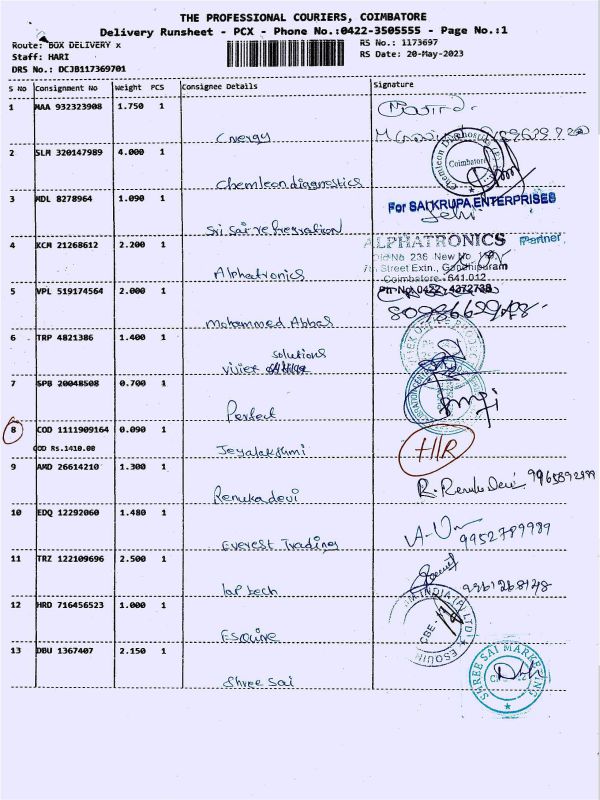 THE PROFESSIONAL COURIERS, COIMBATORE
Delivery Runsheet - PCX - Phone No.:0422-3505555 - Page No.:1
Route: BOX DELIVERY x
RS No.: 1173697
Staff: HARI
RS Date: 20-May-2023
DRS No.: DCJB117369701
S No Consignment No Weight PCS Consignee Details Signature
1 MAA 932323908 1.750 1
Energy
2 SLM 320147989 4.000 1
Coimbatore
Chemleon diagnostics
3 MDL 8278964 1.090 1
For SAI KRUPA ENTERPRISES
Sri Sai
Partner
4 KCM 21268612 2.200 1
ALPHATRONICS
Old No 236 New No
Street Extn., Gandhipuram
Coimbatore - 641 012
Alphatronics
5 VPL 519174564 2.000 1
Ph No 0422 - 4372738
Mohammed Abbas
6 TRP 4821386 1.400 1
solutions
7 SPB 20048508 0.700 1
Perfect
8 COD 1111909164 0.090 1
COD Rs.1410.00
Jeyalakshmi
9 AMD 26614210 1.300 1
R. Renuka Devi
Renukadevi
10 EDQ 12292060 1.480 1
9952789989
Everest Trading
11 TRZ 122109696 2.500 1
lap tech
12 HRD 716456523 1.000 1
INDIA (P) LTD
CBE
ESQUIRE
Esquire
13 DBU 1367407 2.150 1
SHREE SAI MARKETING
Shree Sai